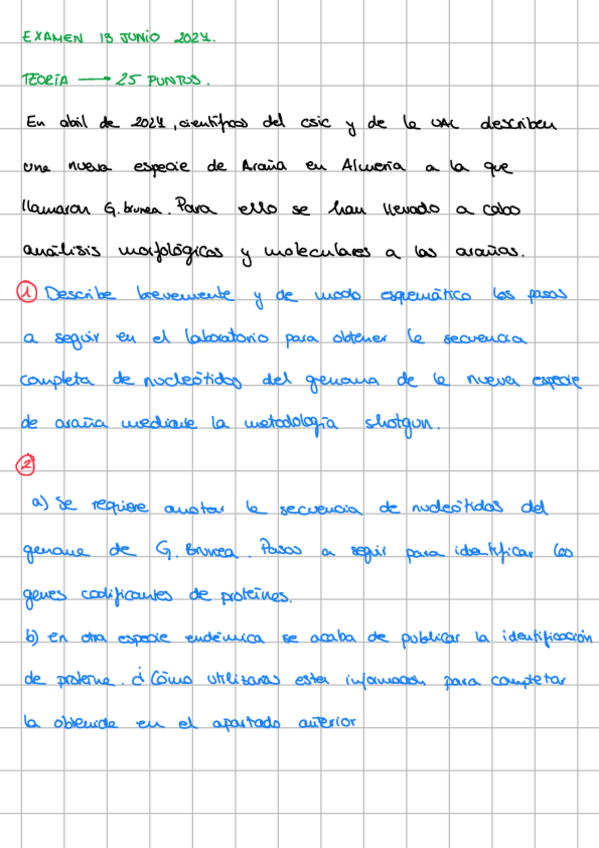 EXAMEN 13 JUNIO 2024.
TEORÍA → 25 PUNTOS.
En abril de 2024, científicos del csic y de la UAL describen
una nueva especie de Araña en Almería a la que
llamaron G. brunea. Para ello se han llevado a cabo
análisis morfológicos y moleculares a las arañas.
① Describe brevemente y de modo esquemático los pasos
a seguir en el laboratorio para obtener la secuencia
completa de nucleótidos del genoma de la nueva especie
de araña mediante la metodología shotgun.
②
a) Se requiere anotar la secuencia de nucleótidos del
genoma de G. Brunea. Pasos a seguir para identificar los
genes codificantes de proteínas.
b) en otra especie endémica se acaba de publicar la identificación
de proteína. ¿Cómo utilizarías esta información para completar
la obtenida en el apartado anterior